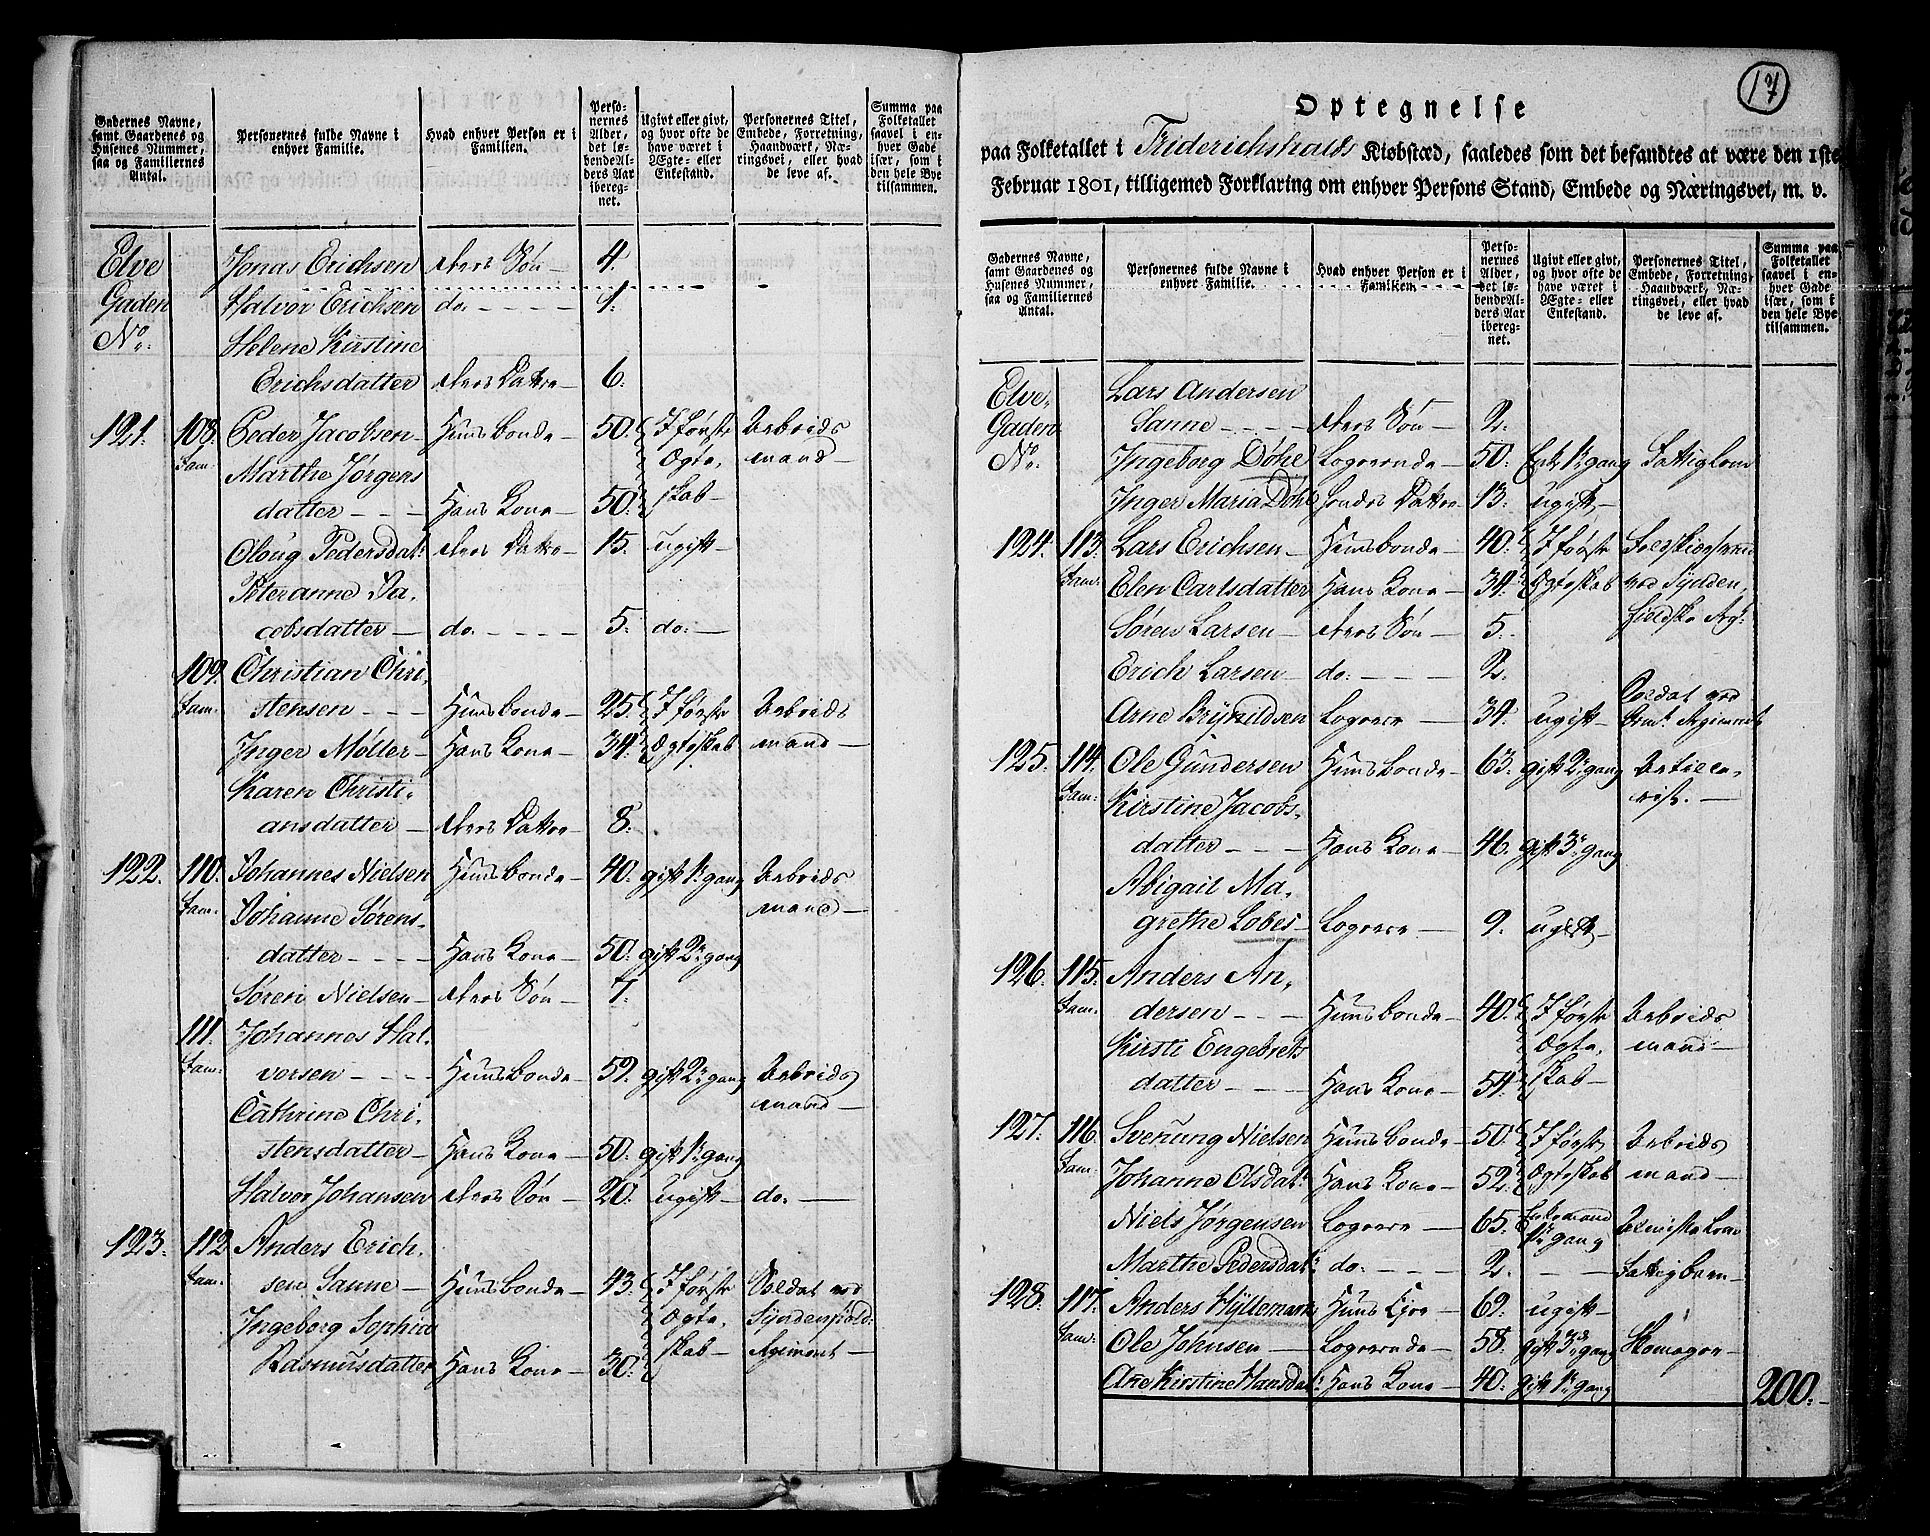 Gadernes Navne, samt Gaardenes og Husenes Nummer, saa og Familiernes Antal.
Personernes fulde Navne i enhver Familie.
Hvad enhver Person er i Familien.
Personernes Alder, det løbende Alders Aar iberegnet.
Ugivt eller givt, og hvor ofte de have været i Ægte- eller Enkestand.
Personernes Titel, Embede, Forretning, Haandværk, Næringsvei, eller hvad de leve af.
Summa paa Folketallet saavel i enhver Gade især, som i den hele Bye tilsammen.
Elve Jonas Erichsen deres Søn 4.
Gaden Halvor Erichsen do. 1.
No. Helene Kirstine
Erichsdatter deres Datter 6.
121. 108. Peder Jacobsen Huusbonde 50. I første Arbeids
Fam: Marthe Jørgens Ægte, mand
datter Hans Kone 50. skab
Oloug Pedersdat: deres Datter 15. ugift
Peteranne Ja,
cobsdatter do. 5. do.
109. Christian Chri,
Fam: stensen Huusbonde 25. I første Arbeids
Inger Møller Hans Kone 34. Ægteskab mand
Karen Christi,
ansdatter deres Datter 8.
122. 110. Johannes Nielsen Huusbonde 40. gift 1. gang Arbeids
Fam: Johanne Sørens, mand
datter Hans Kone 50. gift 2. gang
Søren Nielsen deres Søn 7.
111. Johannes Hal,
Fam: vorsen Huusbonde 59. gift 2. gang Arbeids
Cathrine Chri, mand
stensdatter Hans Kone 50. gift 1. gang
Halvor Johansen deres Søn 20. ugift do.
123. 112. Anders Erich,
Fam: sen Sanne Huusbonde 43. I første Soldat ved
Ingeborg Sophia Ægte,
Rasmusdatter Hans Kone 30. skab Regiment
17
Optegnelse
paa Folketallet i Friderichshalds Kiøbstæd, saaledes som det befandtes at være den 1ste
Februar 1801, tilligemed Forklaring om enhver Persons Stand, Embede og Næringsvei, m. v.
Gadernes Navne, samt Gaardenes og Husenes Nummer, saa og Familiernes Antal.
Personernes fulde Navne i enhver Familie.
Hvad enhver Person er i Familien.
Personernes Alder, det løbende Alders Aar iberegnet.
Ugivt eller givt, og hvor ofte de have været i Ægte- eller Enkestand.
Personernes Titel, Embede, Forretning, Haandværk, Næringsvei, eller hvad de leve af.
Summa paa Folketallet saavel i enhver Gade især, som i den hele Bye tilsammen.
Elve, Lars Andersen
Gaden Sanne deres Søn 2.
No. Ingeborg Døhe Logerende 50. Enke 1. gang Fattiglem
Inger Maria Døhe Datter 13. ugift
124. 113. Lars Erichsen Huusbonde 40. I første
Fam: Elen Carlsdatter Hans Kone 34. Ægteskab ved Synden,
Søren Larsen deres Søn 5. fieldske Reg:
Erich Larsen do. 2.
Arne Brynildsen Logerer 34. ugift Soldat ved Regiment
125. 114. Ole Gundersen Huusbonde 63. gift 2. gang Artille,
Fam: Kirstine Jacobs, rist.
datter Hans Kone 46. gift 3. gang
Abigail Ma,
grethe Lobes Logerer 9. ugift
126. 115. Anders An,
Fam: dersen Huusbonde 40. I første Arbeids
Kirsti Engebrets Ægte, mand
datter Hans Kone 54. skab
127. 116. Svenung Nielsen Huusbonde 50. I første Arbeids
Fam: Johanne Olsdat: Hans Kone 52. Ægteskab mand
Niels Jørgensen Logerer 65. Enkemand 1. gang Almisse Lem
Marthe Pedersdat: do. 2. Fattig barn
128. 117. Anders Hyltemarks Huus Eier 69. ugift
Fam: Ole Johnsen Logerende 58. gift 3. gang Skomager
Ane Kirstine Hansdat: Hans Kone 40. gift 1. gang 200.